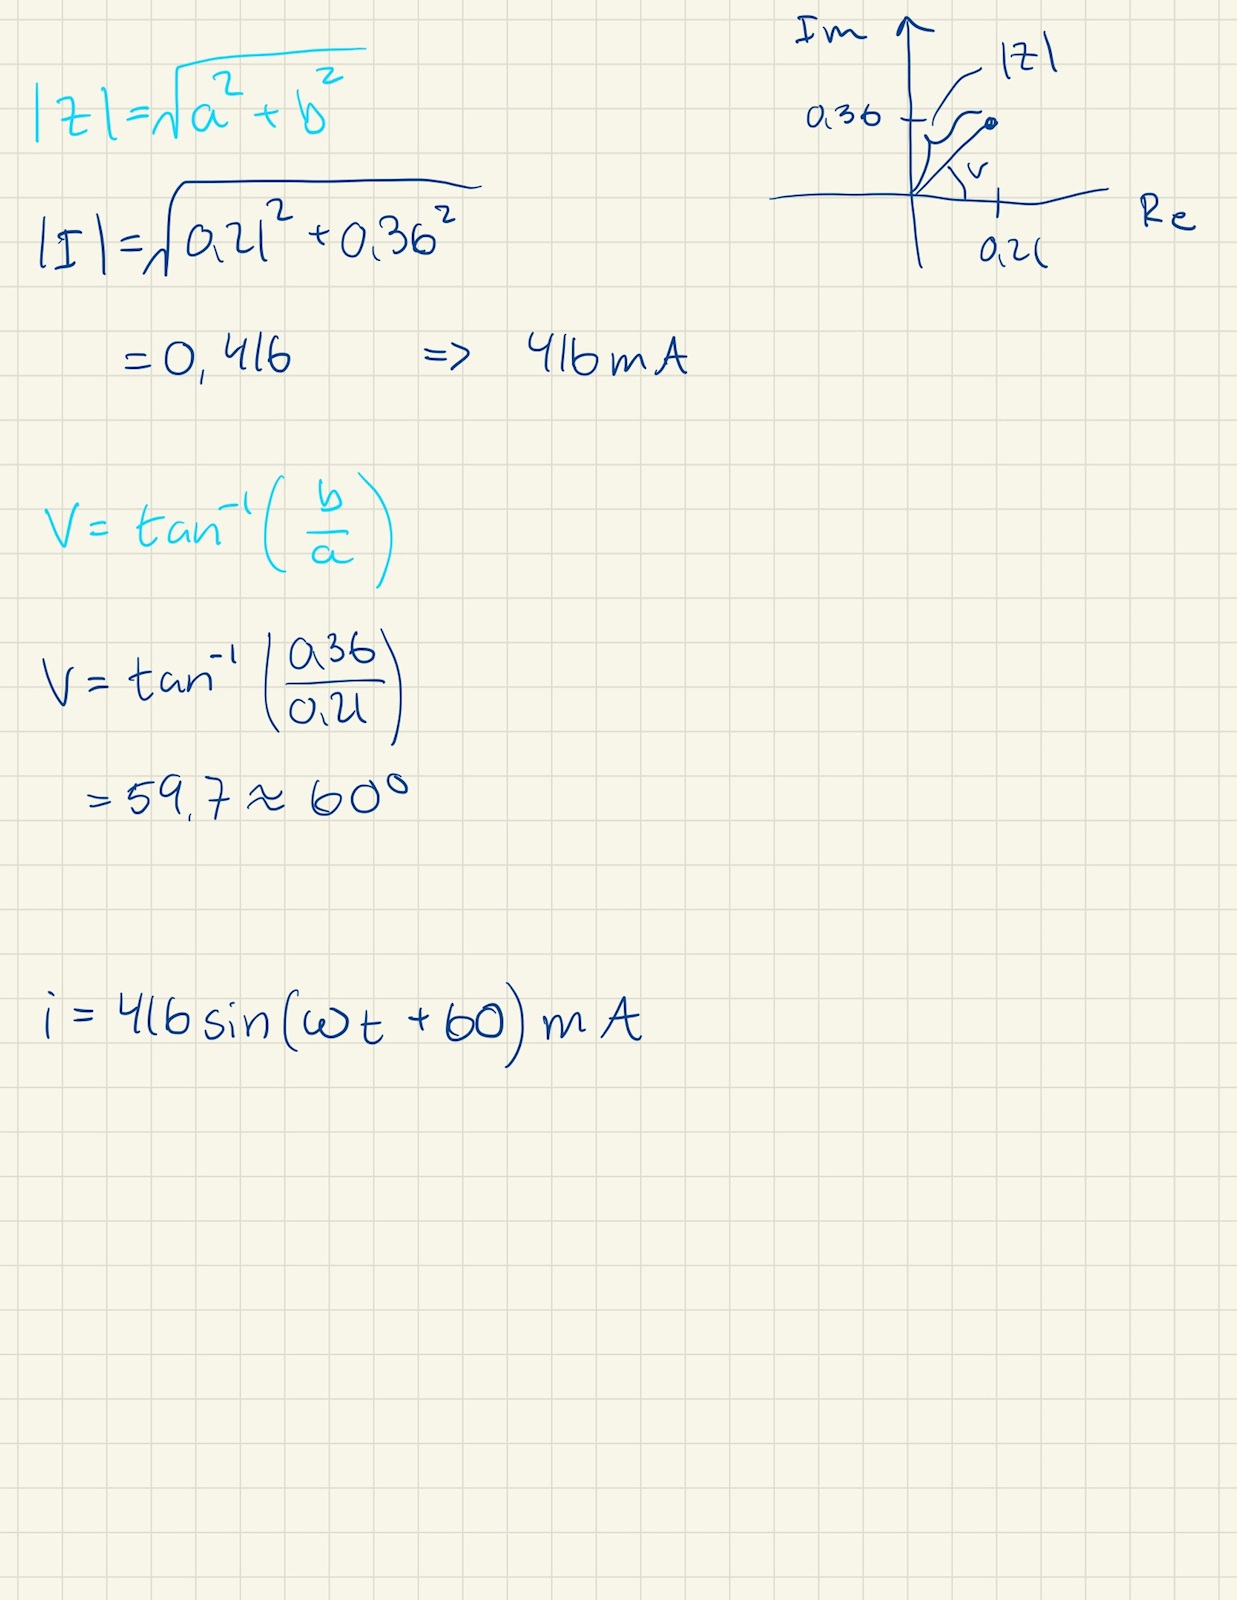 |Z|=√a²+b²
|I|=√0,21²+0,36²
=0,416 => 416mA
V= tan⁻¹(b/a)
V= tan⁻¹(0,36/0,21)
=59,7≈60°
i=416sin(ωt+60)mA
Im
|Z|
0,36
v
Re
0,21